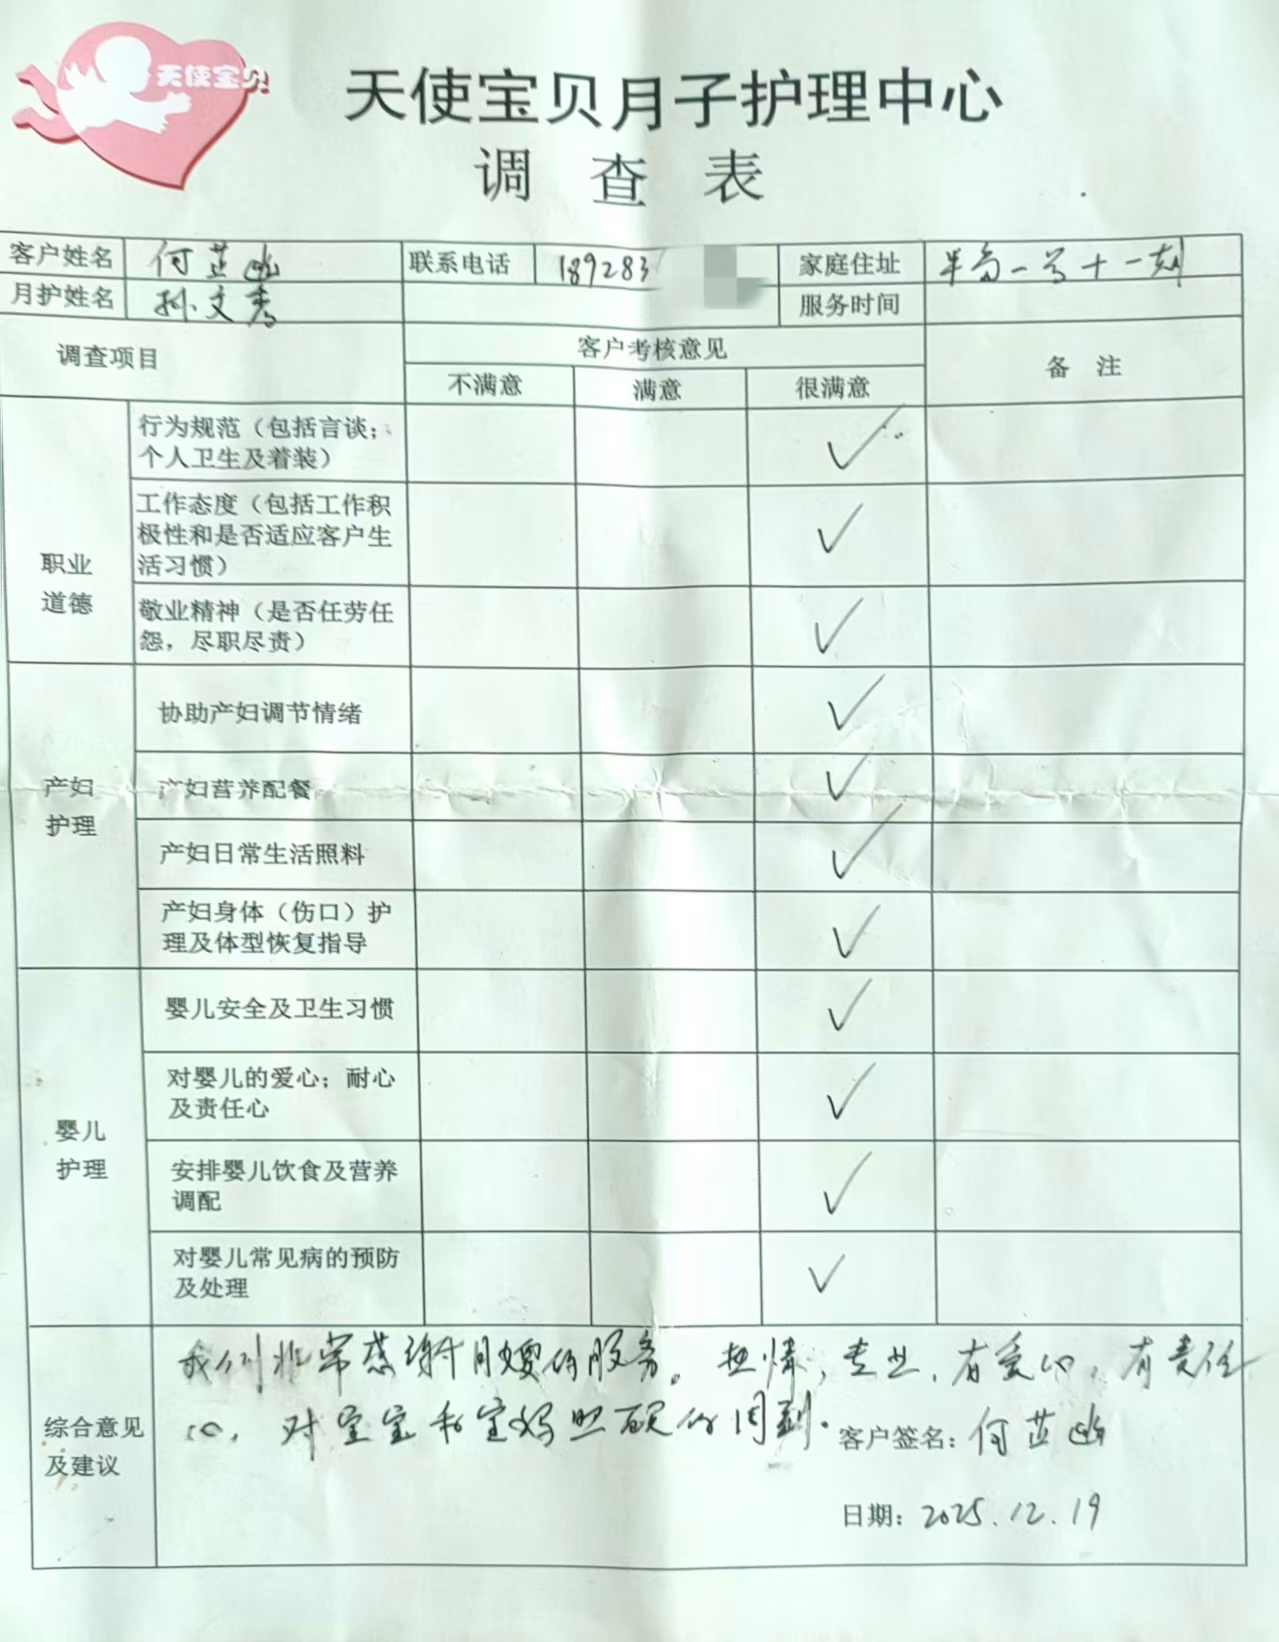 天使宝贝
天使宝贝月子护理中心
调查表
客户姓名 何芷 联系电话 189283 家庭住址 半岛一号十一刻
月护姓名 孙文秀 服务时间
调查项目 客户考核意见 备 注
不满意 满意 很满意
职业
道德
行为规范（包括言谈；
个人卫生及着装） ✓
工作态度（包括工作积
极性和是否适应客户生
活习惯） ✓
敬业精神（是否任劳任
怨，尽职尽责） ✓
产妇
护理
协助产妇调节情绪 ✓
产妇营养配餐 ✓
产妇日常生活照料 ✓
产妇身体（伤口）护
理及体型恢复指导 ✓
婴儿
护理
婴儿安全及卫生习惯 ✓
对婴儿的爱心；耐心
及责任心 ✓
安排婴儿饮食及营养
调配 ✓
对婴儿常见病的预防
及处理 ✓
综合意见
及建议
我们非常感谢月嫂的服务。热情，专业，有爱心，有责任
心，对宝宝和宝妈照顾的周到。
客户签名：何芷
日期：2025.12.19